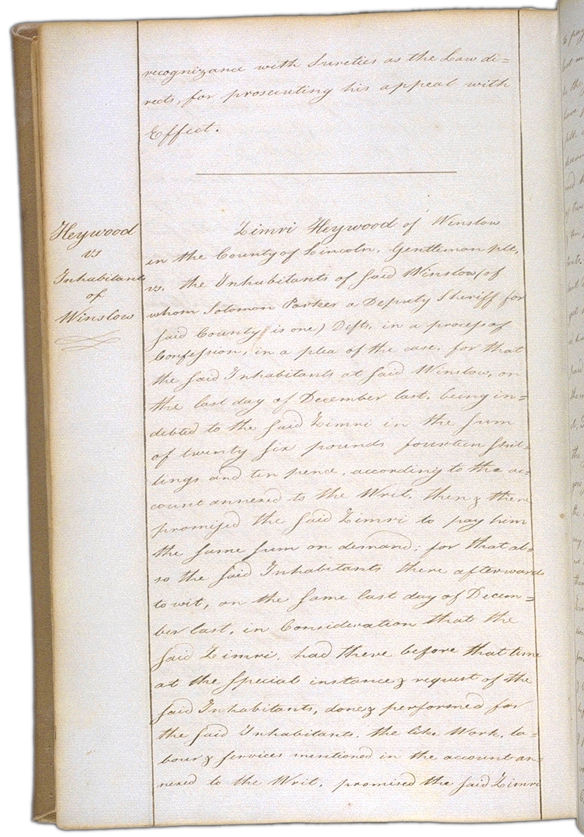 recognizance with Sureties as the Law di=
rects, for prosecuting his appeal with
Effect.
Heywood
vs
Inhabitants
of
Winslow
Zimri Heywood of Winslow
in the County of Lincoln, Gentleman plt,
vs. the Inhabitants of said Winslow (of
whom Solomon Parker a Deputy Sheriff for
said County is one) Defts, in a process of
Confession, in a plea of the case, for that
the said Inhabitants at said Winslow, on
the last day of December last, being in=
debted to the said Zimri in the sum
of twenty six pounds fourteen shil=
lings and ten pence, according to the ac=
count annexed to the Writ, then & there
promised the said Zimri to pay him
the same sum on demand; for that al=
so the said Inhabitants there afterwards
to wit, on the same last day of Decem=
ber last, in Consideration that the
said Zimri, had there before that time
at the special instance & request of the
said Inhabitants, done & performed for
the said Inhabitants, the like Work, la=
bour & services mentioned in the account an=
nexed to the Writ, promised the said Zimri